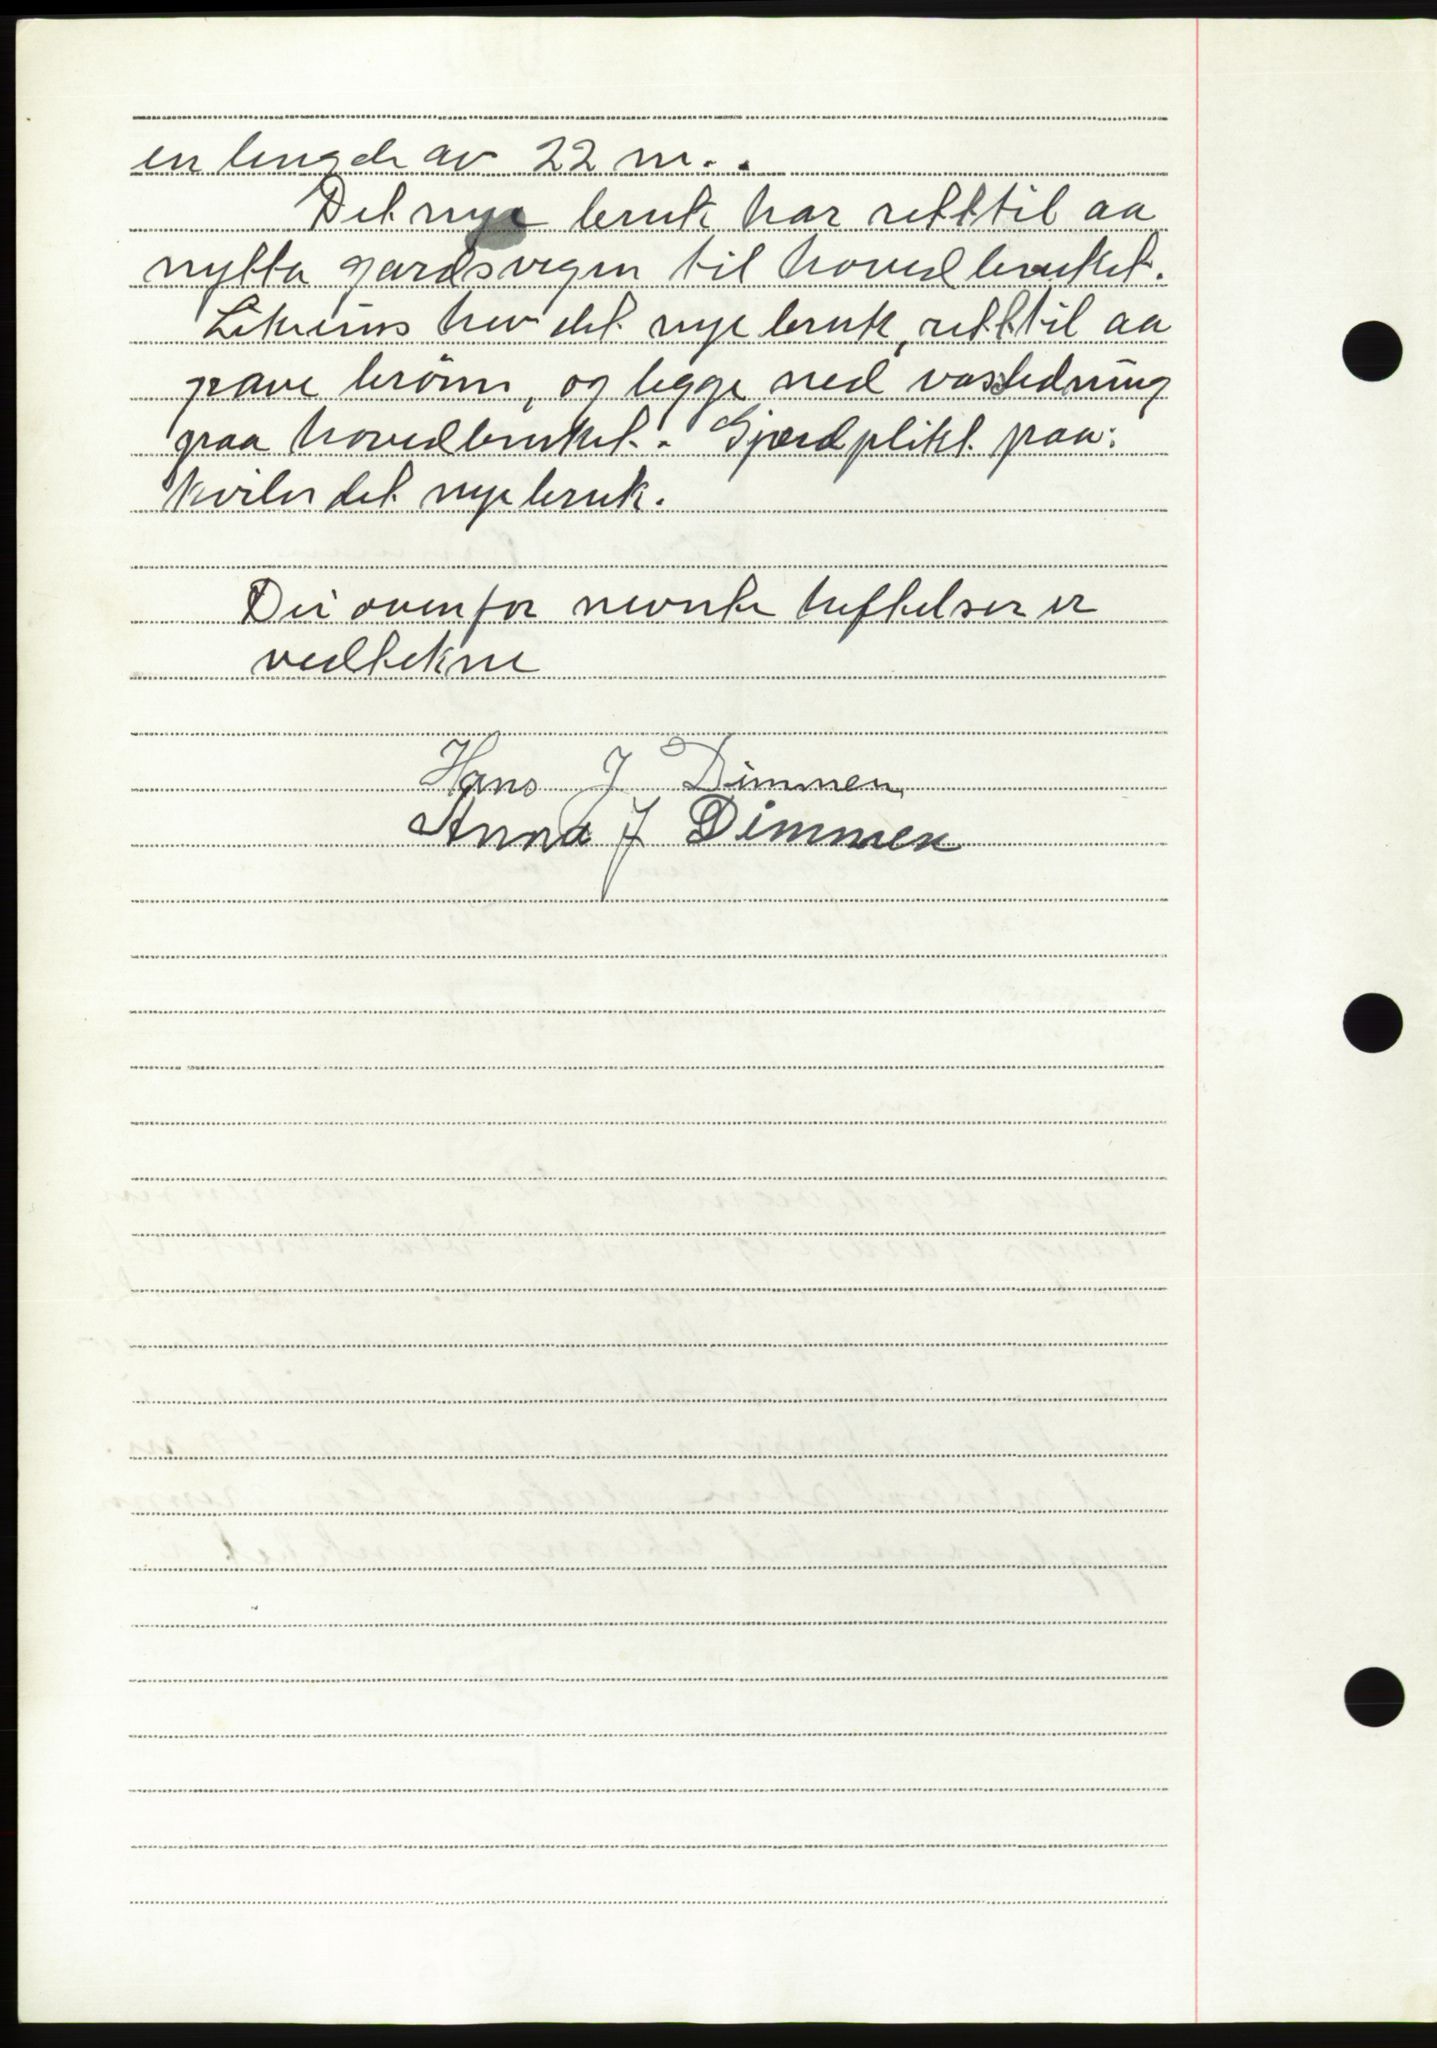 en lengde av 22 m..
Det nye bruk har rett til aa
nytta gardsvegen til hovedbruket.
Likeeins hev det nye bruk, rett til aa
grave brönn, og legge ned vassledning
paa hovedbruket. Gjerdplikt paa:
kviler det nye bruk.
Dei ovenfor nevnte heftelser er
vedtekne
Hans J Dimmen
Anna J Dimmen